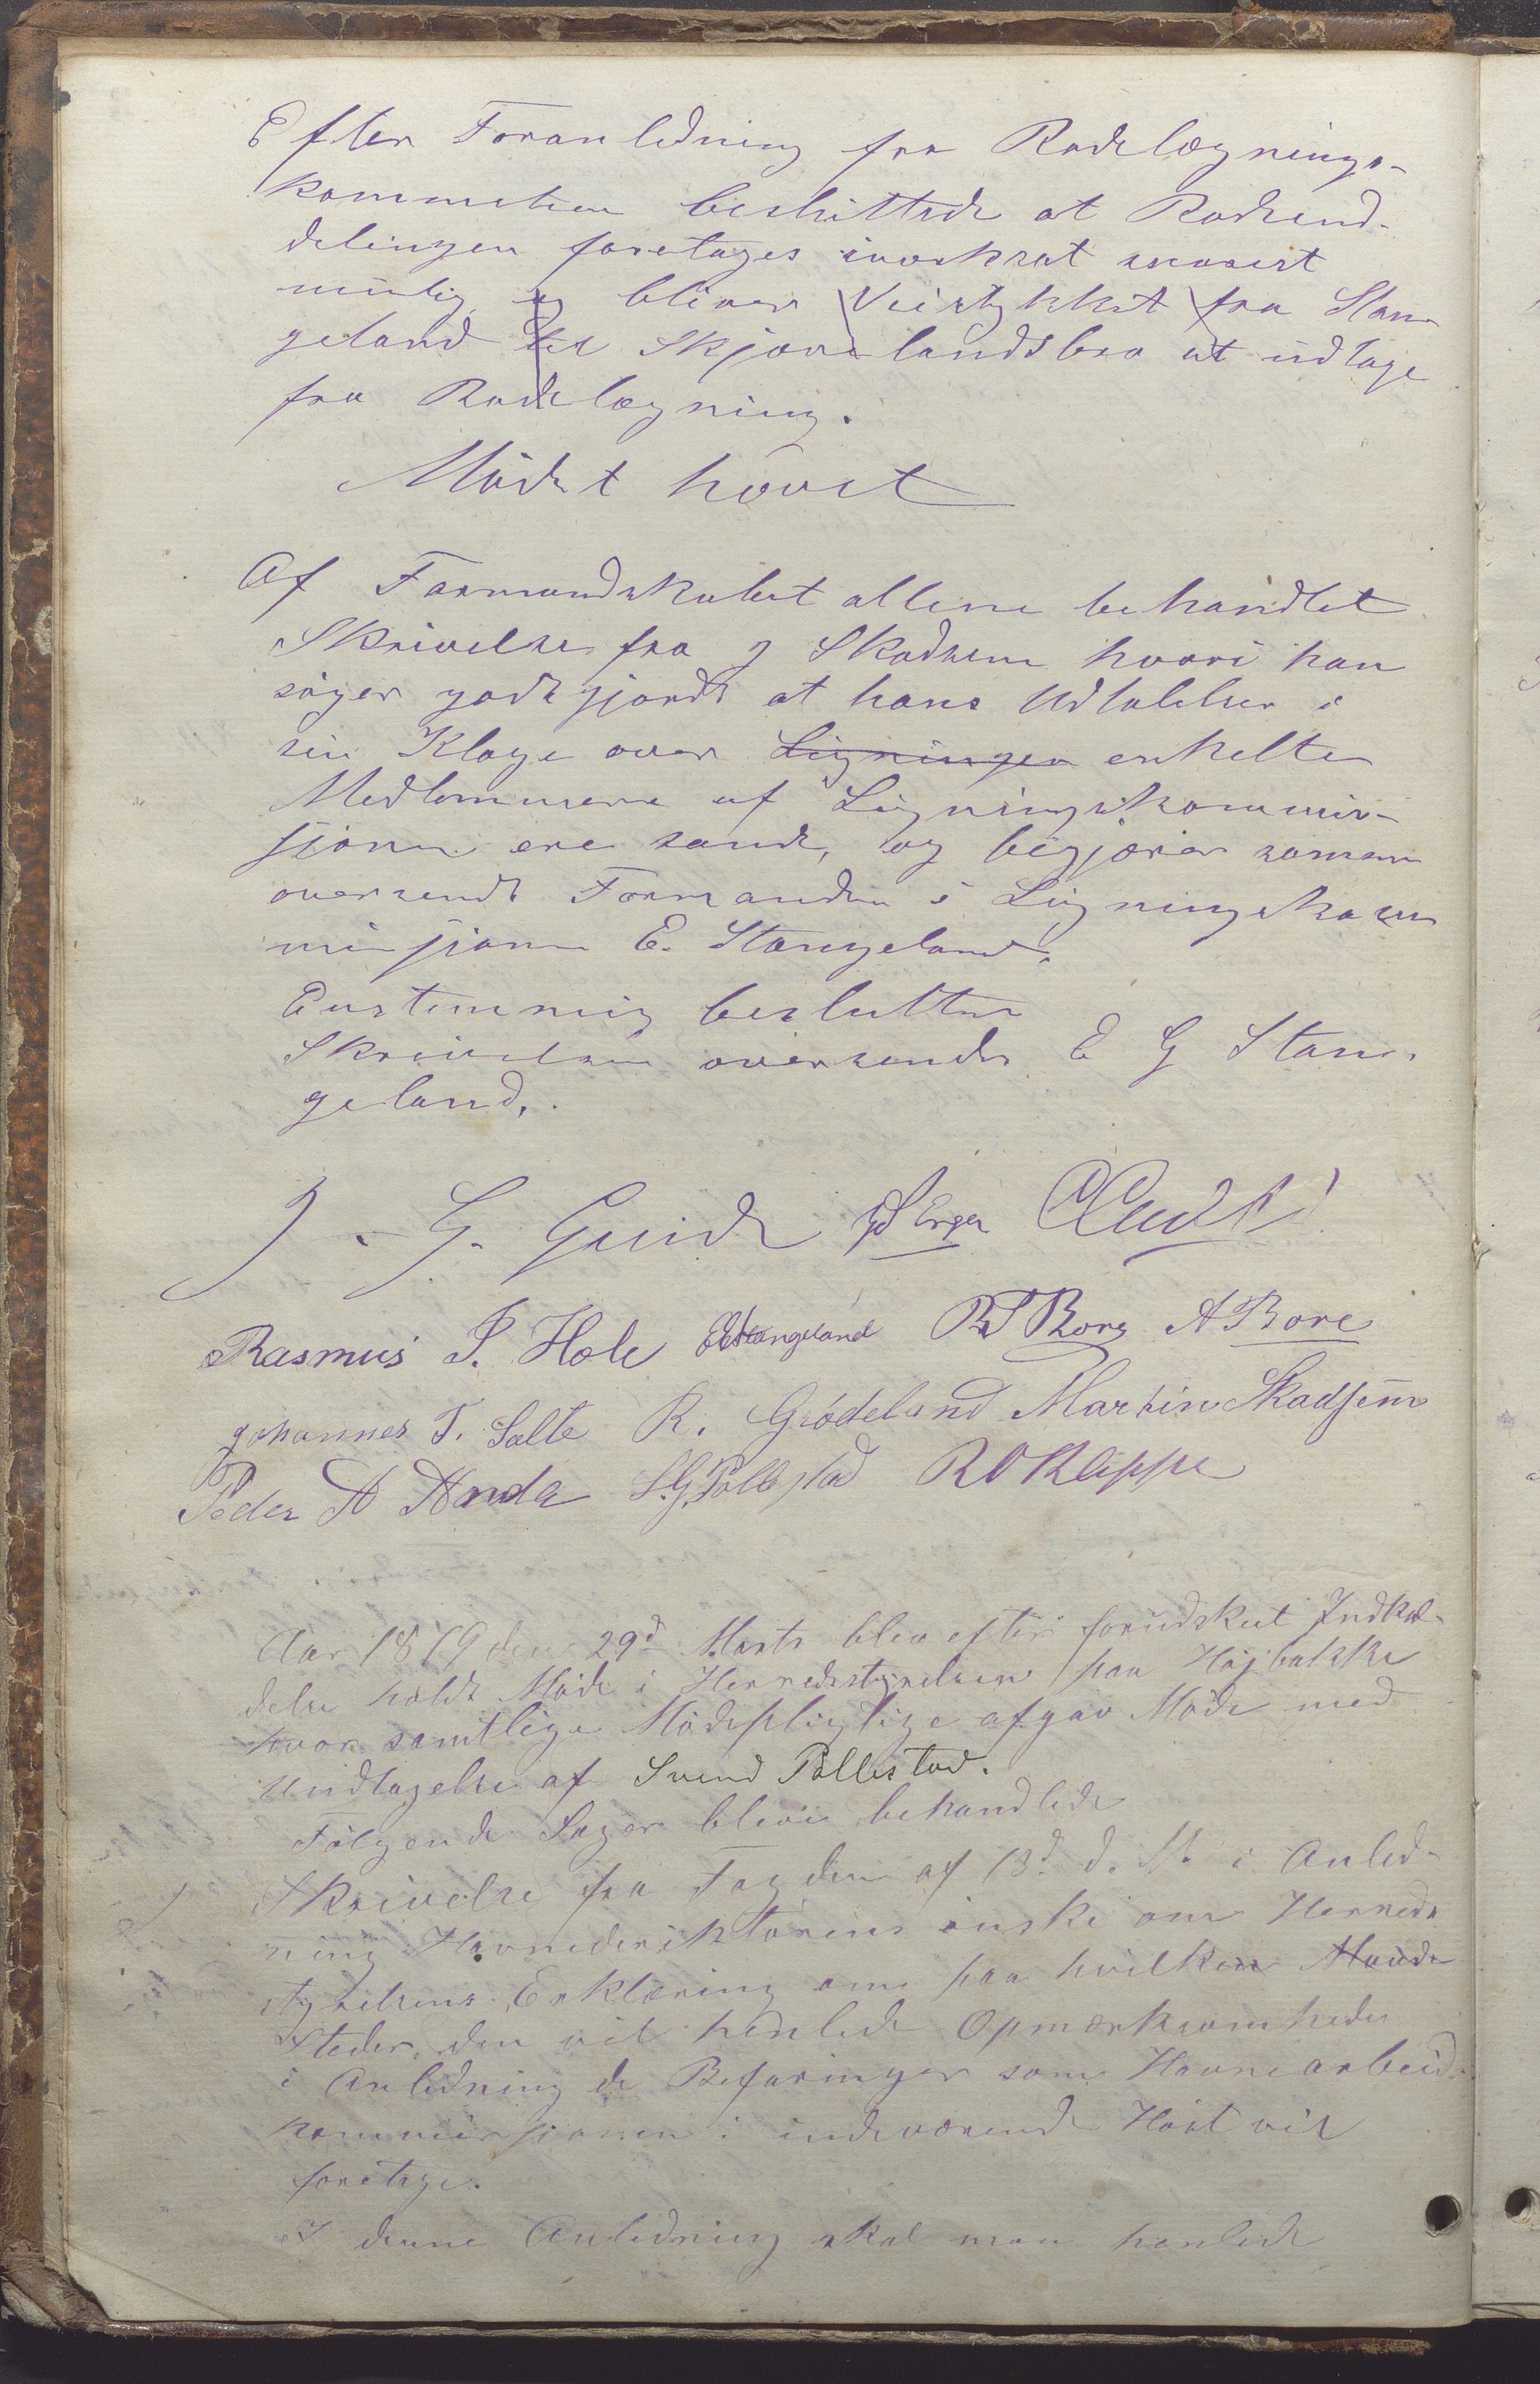 Efter Foranledning fra Rodelægnings-
kommiteen besluttede at Rodeind-
delingen foretages snarest
mulig og bliver Veistykket fra Stan-
geland til Skjævelandsbro at udtage
fra Rodelægning.
Mödet hævet
Af Formandskabet allene behandlet
Skrivelse fra J Skadsem hvori han
söger godtgjordt at hans Udtalelser i
sin Klage over Ligningen enkelte
Medlemmere af Ligningskommis-
sjonen ere sande, og begjærer samme
oversendt Formanden i Ligningskom
misjionen E. Stangeland.
Enstemmig besluttes
Skrivelsen oversendes E G Stan-
geland.
J. G. Grude Erga
Rasmus S. Hole EStangeland Bore A Bore
Johannes T. Salte R. Grödeland Martin Skadsem
Peder A Anda S.G. Pollestad R O Kleppe
Aar 1879 den 29d Marts blev efter forudskeet Indkal-
delse holdt Möde i Herredsstyrelsen paa Höjbakke
hvor samtlige Mödepligtige afgav Möde med
Undtagelse af Svend Pollestad.
Fölgende Sager bleve behandlede
Skrivelse fra Fogden af 13d d. M. i Anled-
ning Havnedirektörens önske om Herreds
styrelsens Erklæring om paa hvilken
Steder den vil henlede Opmærksomheden
i Anledning de Befaringer som Havnearbeid-
kommisjionen i indeværende Höst vil
foretage.
I denne Anledning skal man henlede